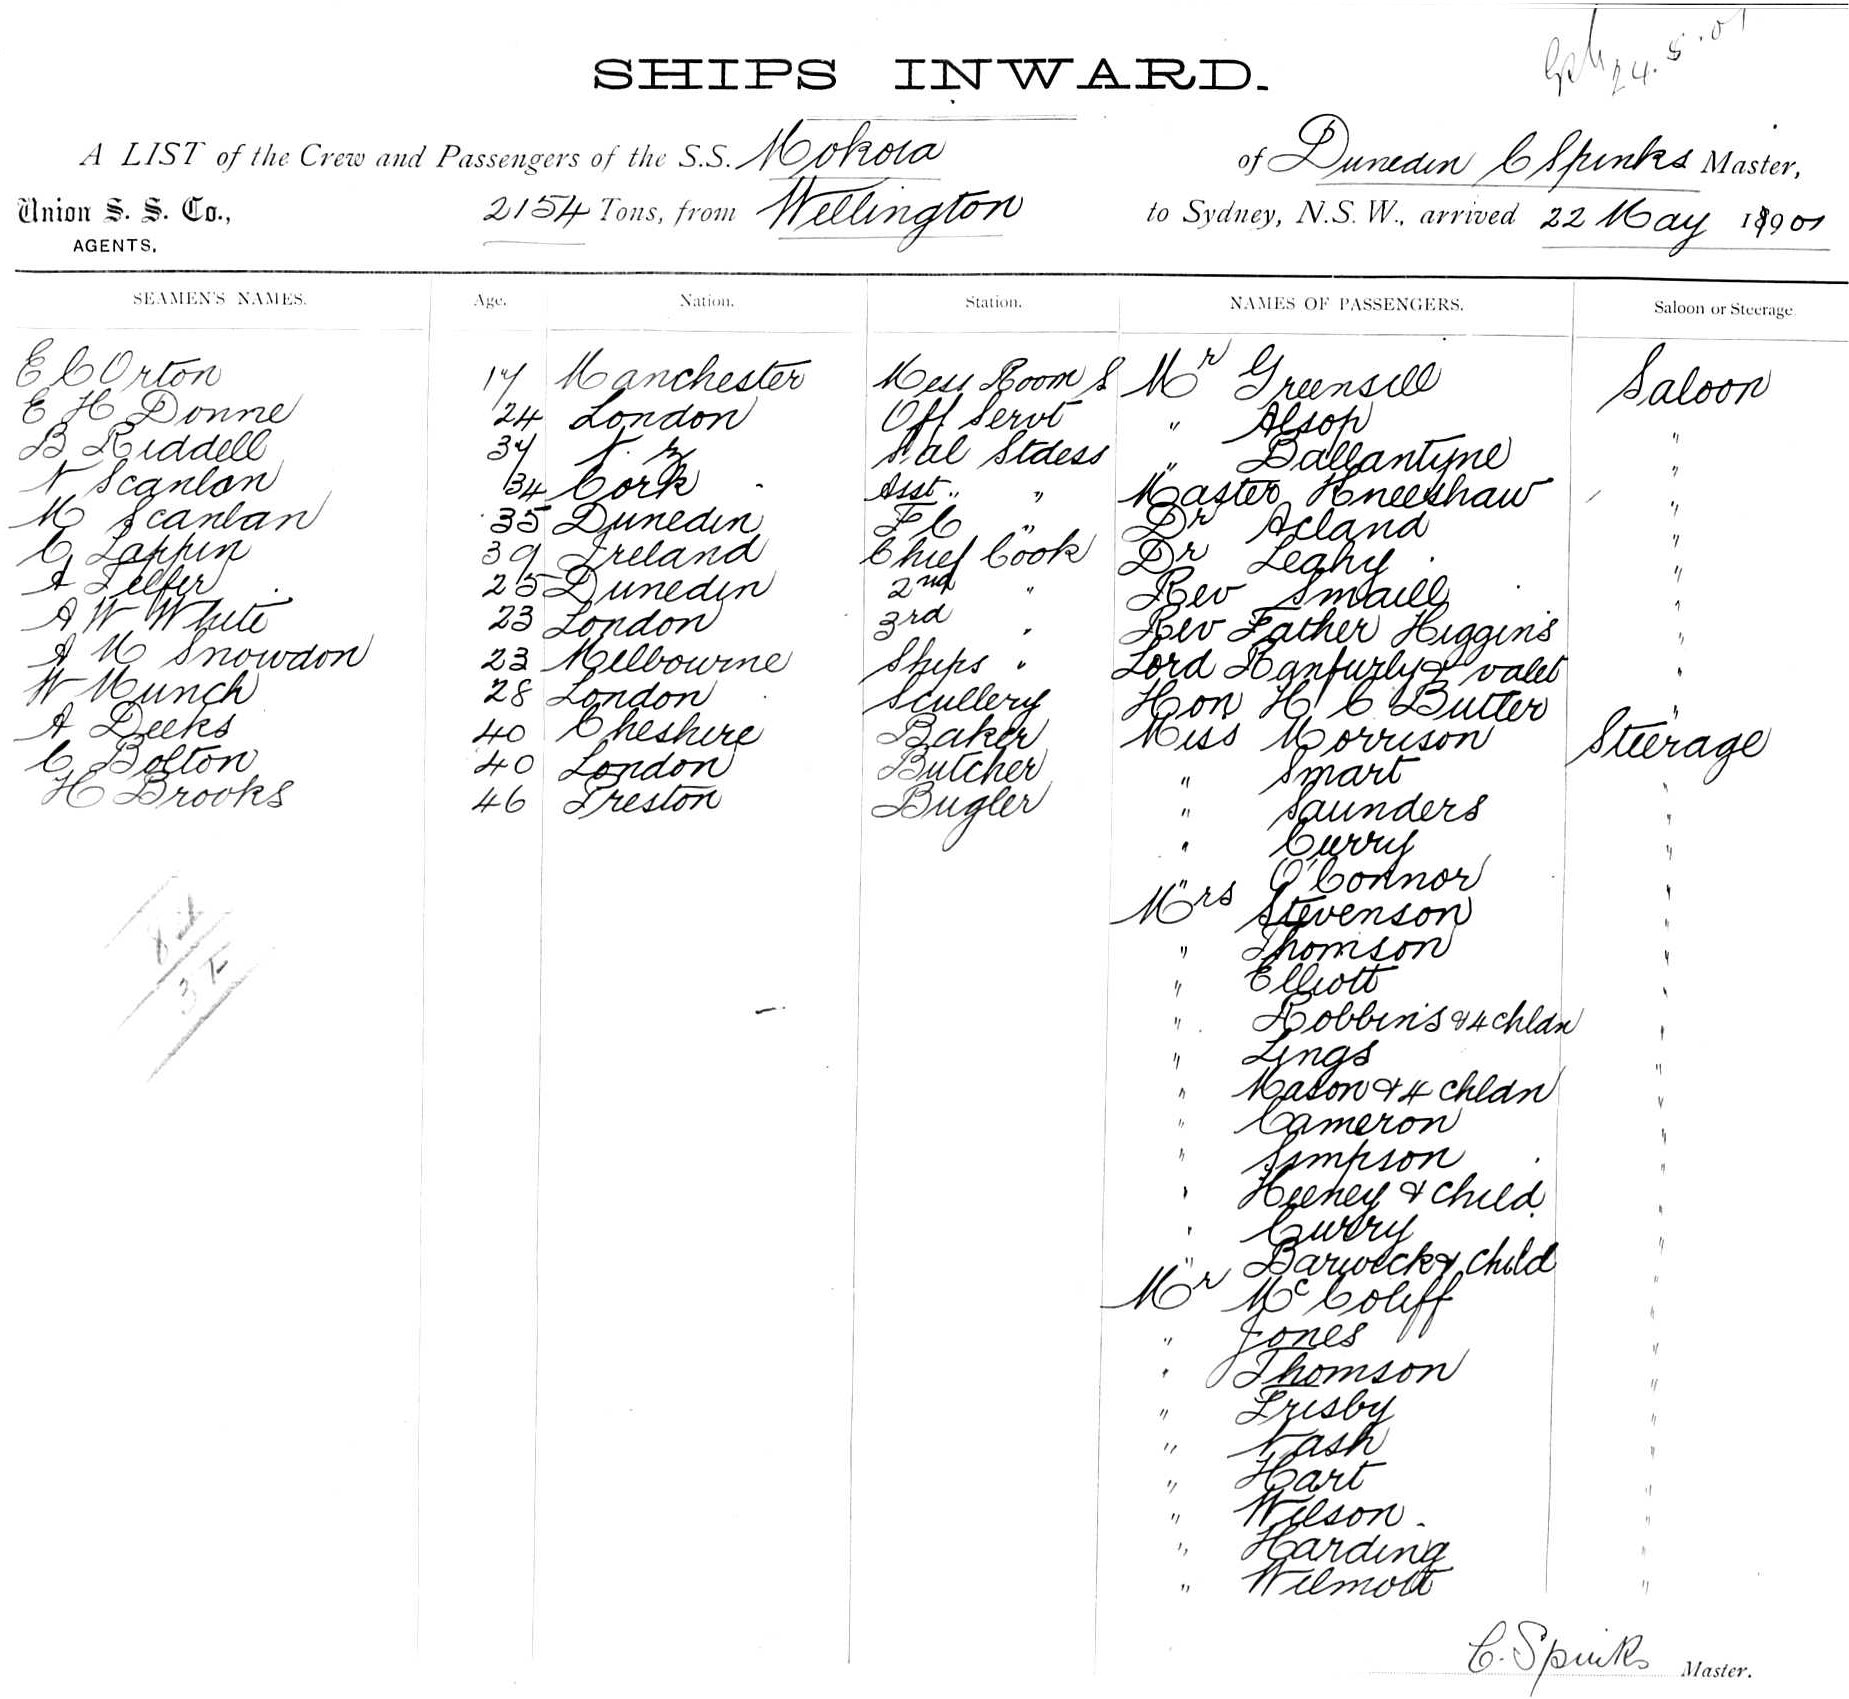 24.5.01
SHIPS INWARD.
A LIST of the Crew and Passengers of the S.S. Mokoia of Dunedin C Spinks Master,
Union S. S. Co., 2154 Tons, from Wellington to Sydney, N.S.W., arrived 22 May 1901
AGENTS.
SEAMEN'S NAMES. Age. Nation. Station. NAMES OF PASSENGERS. Saloon or Steerage
E C Orton 17 Manchester Mess Room S Mr Greensill Saloon
E H Donne 24 London Off Servt " Alsop "
B Riddell 37 N. Z Sal Stdess " Ballantyne "
N Scanlan 34 Cork Asst " " Master Kneeshaw "
M Scanlan 35 Dunedin F C " Dr Acland "
C Lappin 39 Ireland Chief Cook Dr Leahy "
A Telfer 25 Dunedin 2nd " Rev Smaill "
A W White 23 London 3rd " Rev Father Higgins "
A M Snowdon 23 Melbourne Ships " Lord Ranfurly & valet "
W Munch 28 London Scullery Hon H C Butler "
A Deeks 40 Cheshire Baker Miss Morrison Steerage
C Bolton 40 London Butcher " Smart "
H Brooks 46 Preston Bugler " Saunders "
" Curry "
" O'Connor "
Mrs Stevenson "
" Thomson "
" Elliott "
" Robbins & 4 chldn "
" Lings "
" Mason & 4 chldn "
" Cameron "
" Simpson "
" Heeney & child "
" Curry "
" Barwick & child "
Mr McColiff "
" Jones "
" Thomson "
" Frisby "
" Nash "
" Hart "
" Wilson "
" Harding "
" Wilmott "
C. Spinks Master.